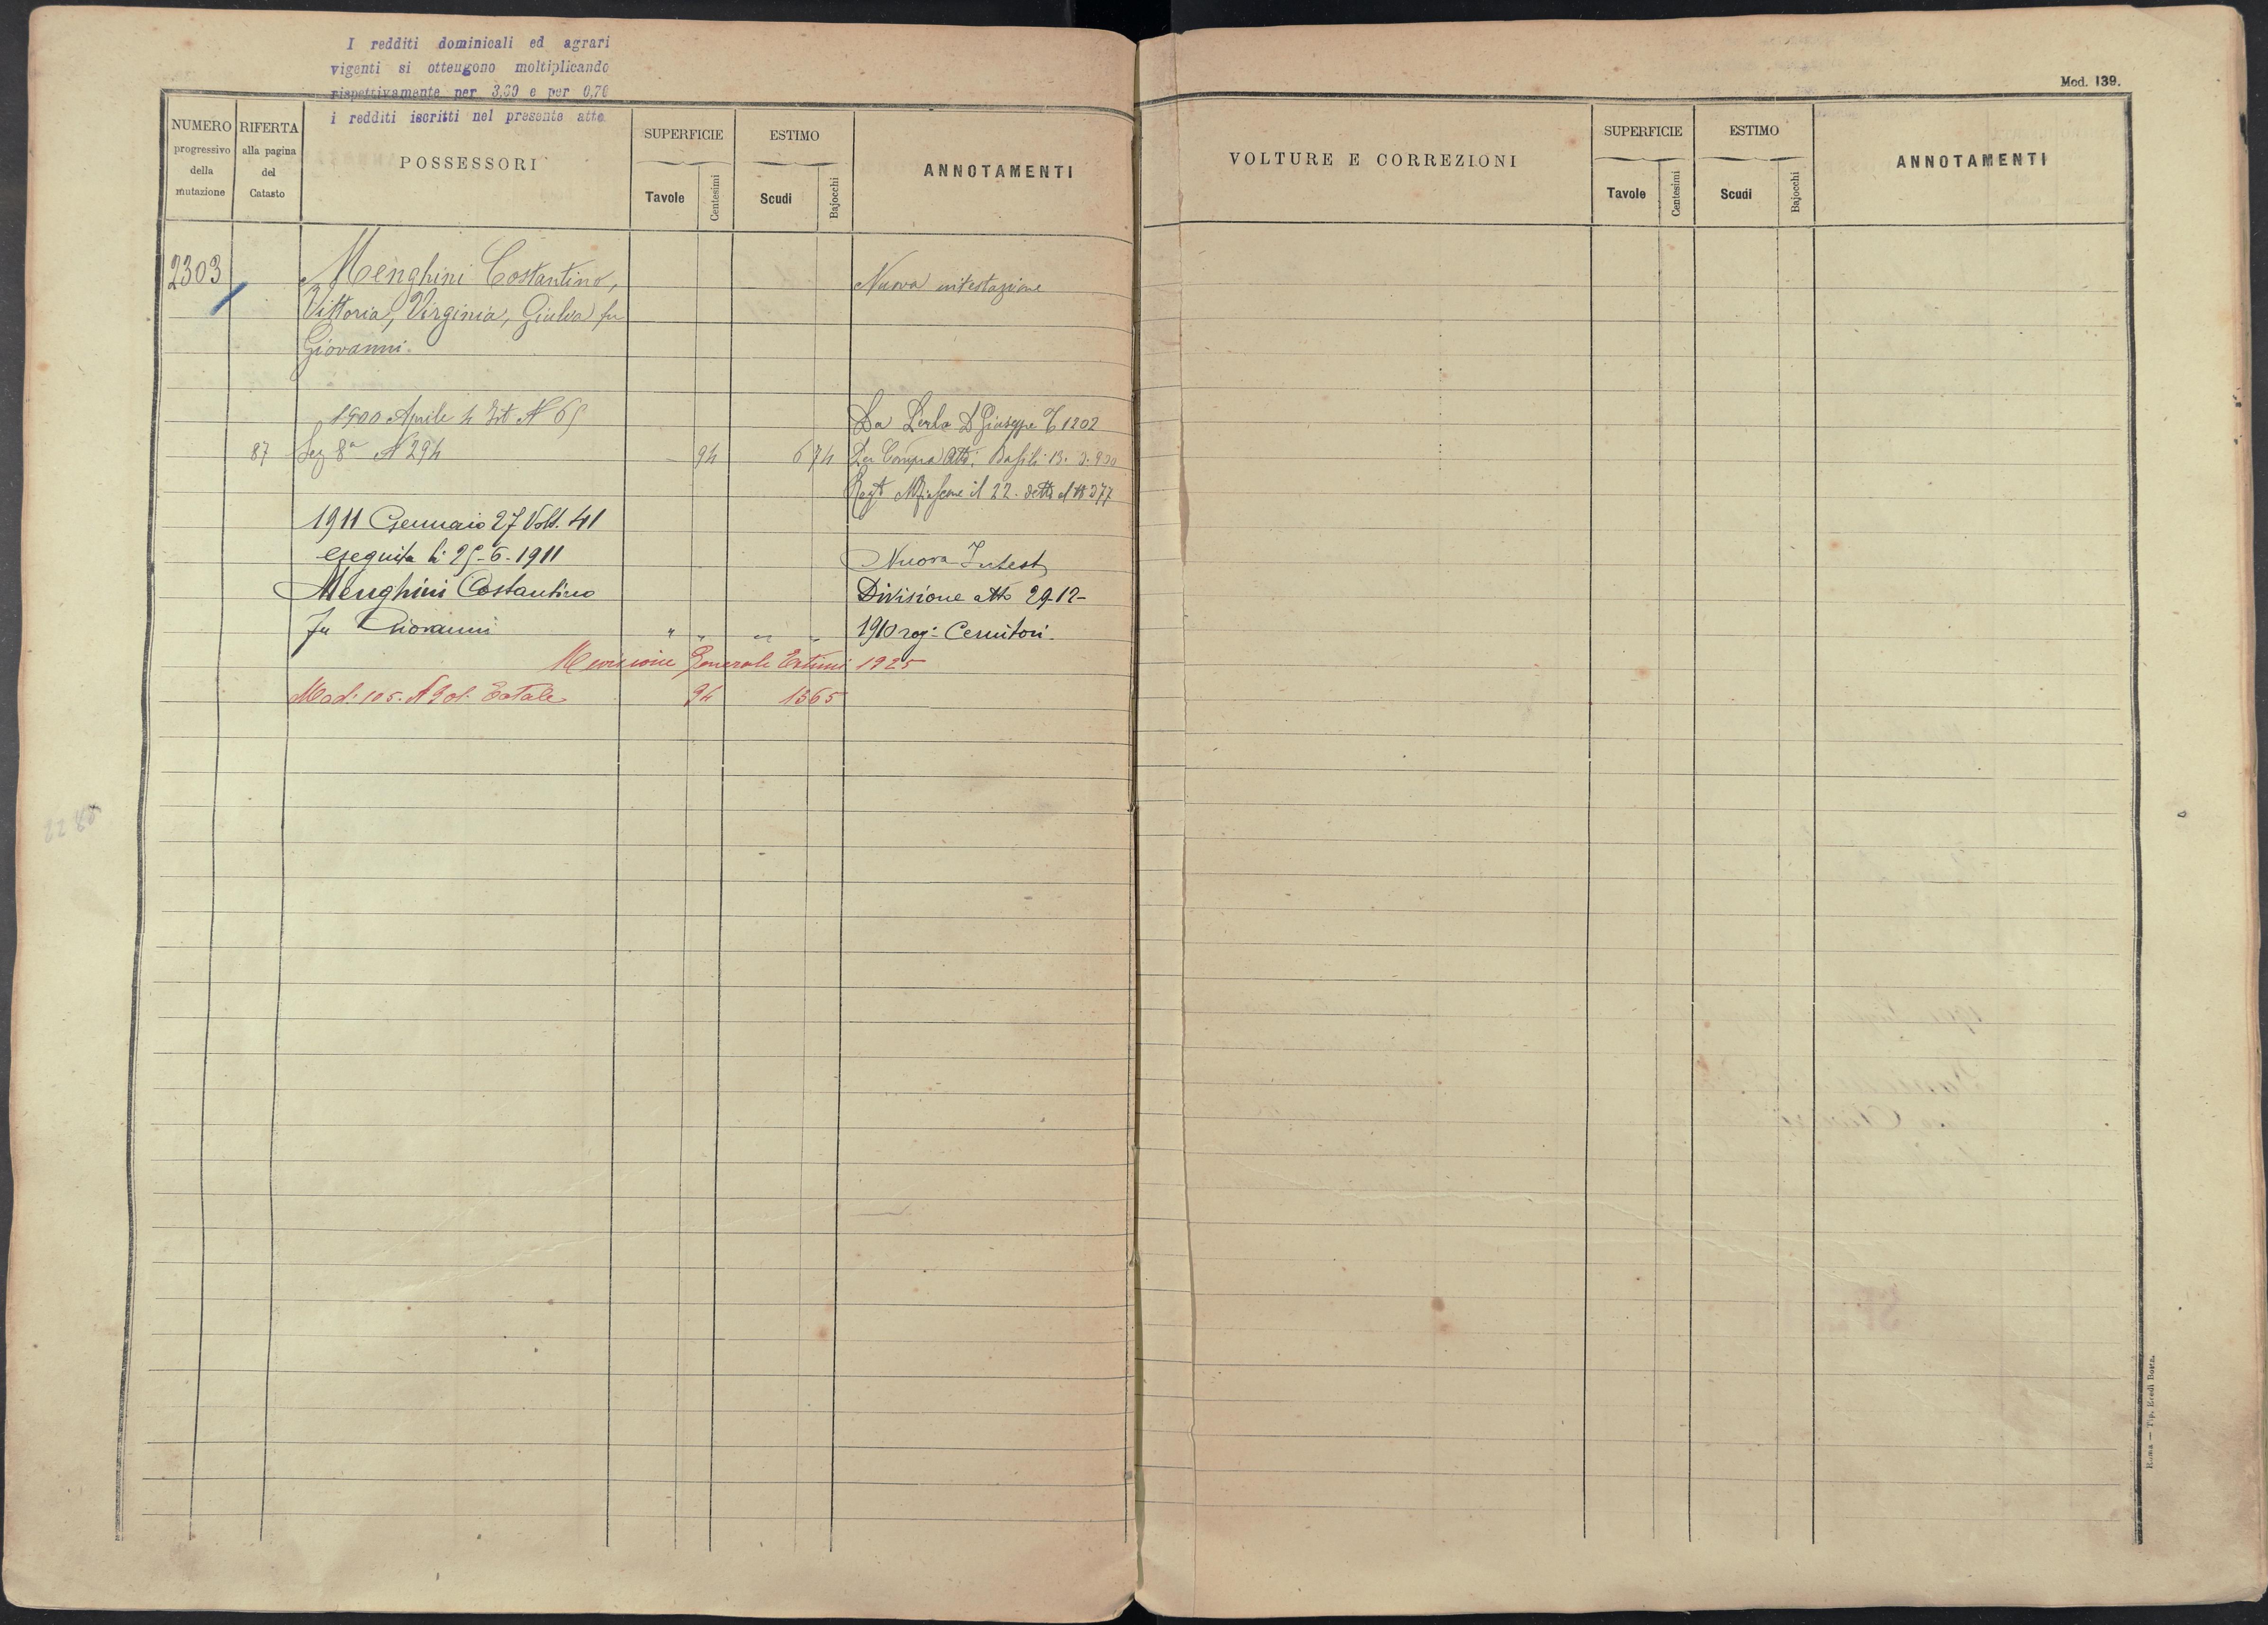 I redditi dominicali ed agrari
vigenti si ottengono moltiplicando
rispettivamente per 3,30 e per 0,70
i redditi iscritti nel presente atto
NUMERO
progressivo
della
mutazione
RIFERTA
alla pagina
del
Catasto
POSSESSORI
SUPERFICIE
Tavole
Centesimi
ESTIMO
Scudi
Bajocchi
ANNOTAMENTI
2303
Menghini Costantino,
Nuova intestazione
Vittoria, Virginia, Giulia fu
Giovanni.
1900 Aprile 4
Da Perla D Giuseppe 1202
87 Sez 8ª N 294 94 6 74 Per Compra Atto. Basili 13. 3. 900
il 22. detto al N 377
1911 Gennaio 27 Volt. 41
eseguita li 25-6-1911 Nuova Intest
Menghini Costantino Divisione atto 29-12-
fu Giovanni " " " " 1910 rog:
Revisione Generale Estimi 1925
Mod: 105. Totale 94 1565
2285
Mod. 139.
VOLTURE E CORREZIONI
SUPERFICIE
Tavole
Centesimi
ESTIMO
Scudi
Bajocchi
ANNOTAMENTI
Roma — Tip. Eredi Botta.